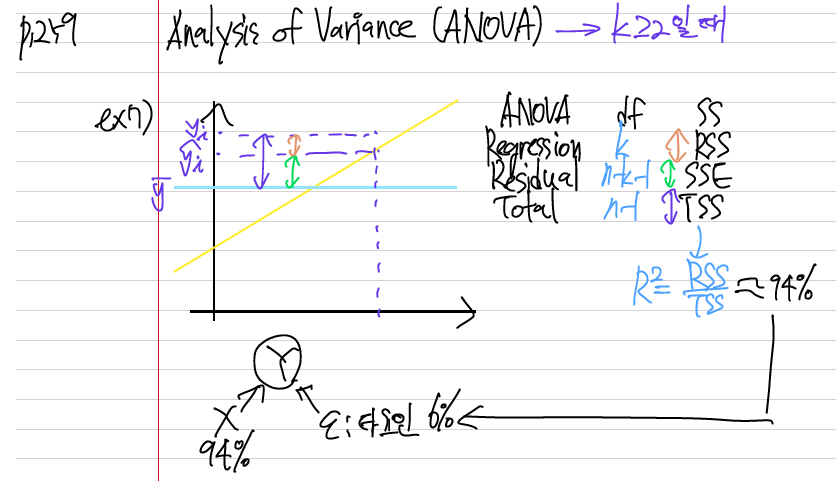 p.259 Analysis of Variance (ANOVA) → k≥2일 때
ex7)
y_i
ŷ_i
ȳ
ANOVA df SS
Regression k RSS
Residual n-k-1 SSE
Total n-1 TSS
R² = RSS/TSS ≈ 94%
Y
X ε: 타요인 6%
94%